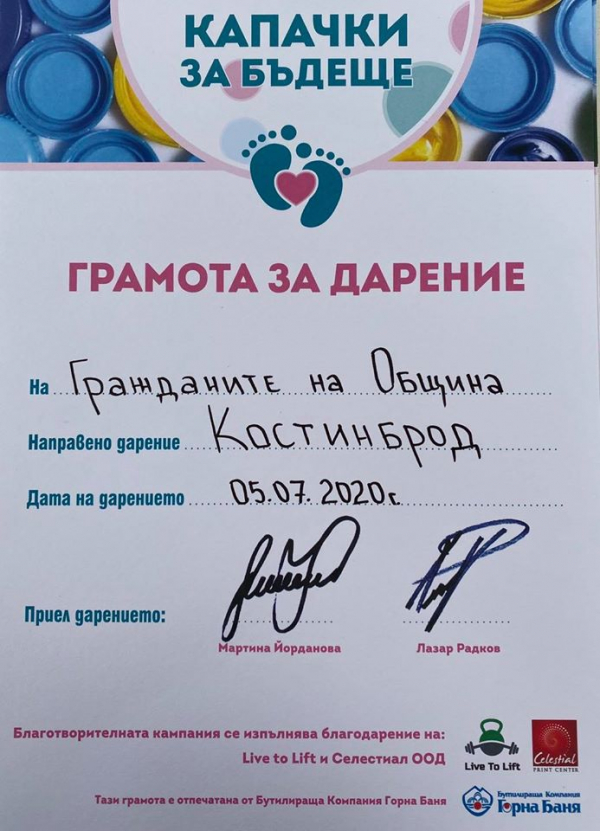 КАПАЧКИ
ЗА БЪДЕЩЕ
ГРАМОТА ЗА ДАРЕНИЕ
На Гражданите на Община
Направено дарение Костинброд
Дата на дарението 05.07.2020г.
Приел дарението:
Мартина Йорданова
Лазар Радков
Благотворителната кампания се изпълнява благодарение на:
Live to Lift и Селестиал ООД
Live To Lift
Celestial
PRINT CENTER
Тази грамота е отпечатана от Бутилираща Компания Горна Баня
Бутилираща Компания
Горна Баня